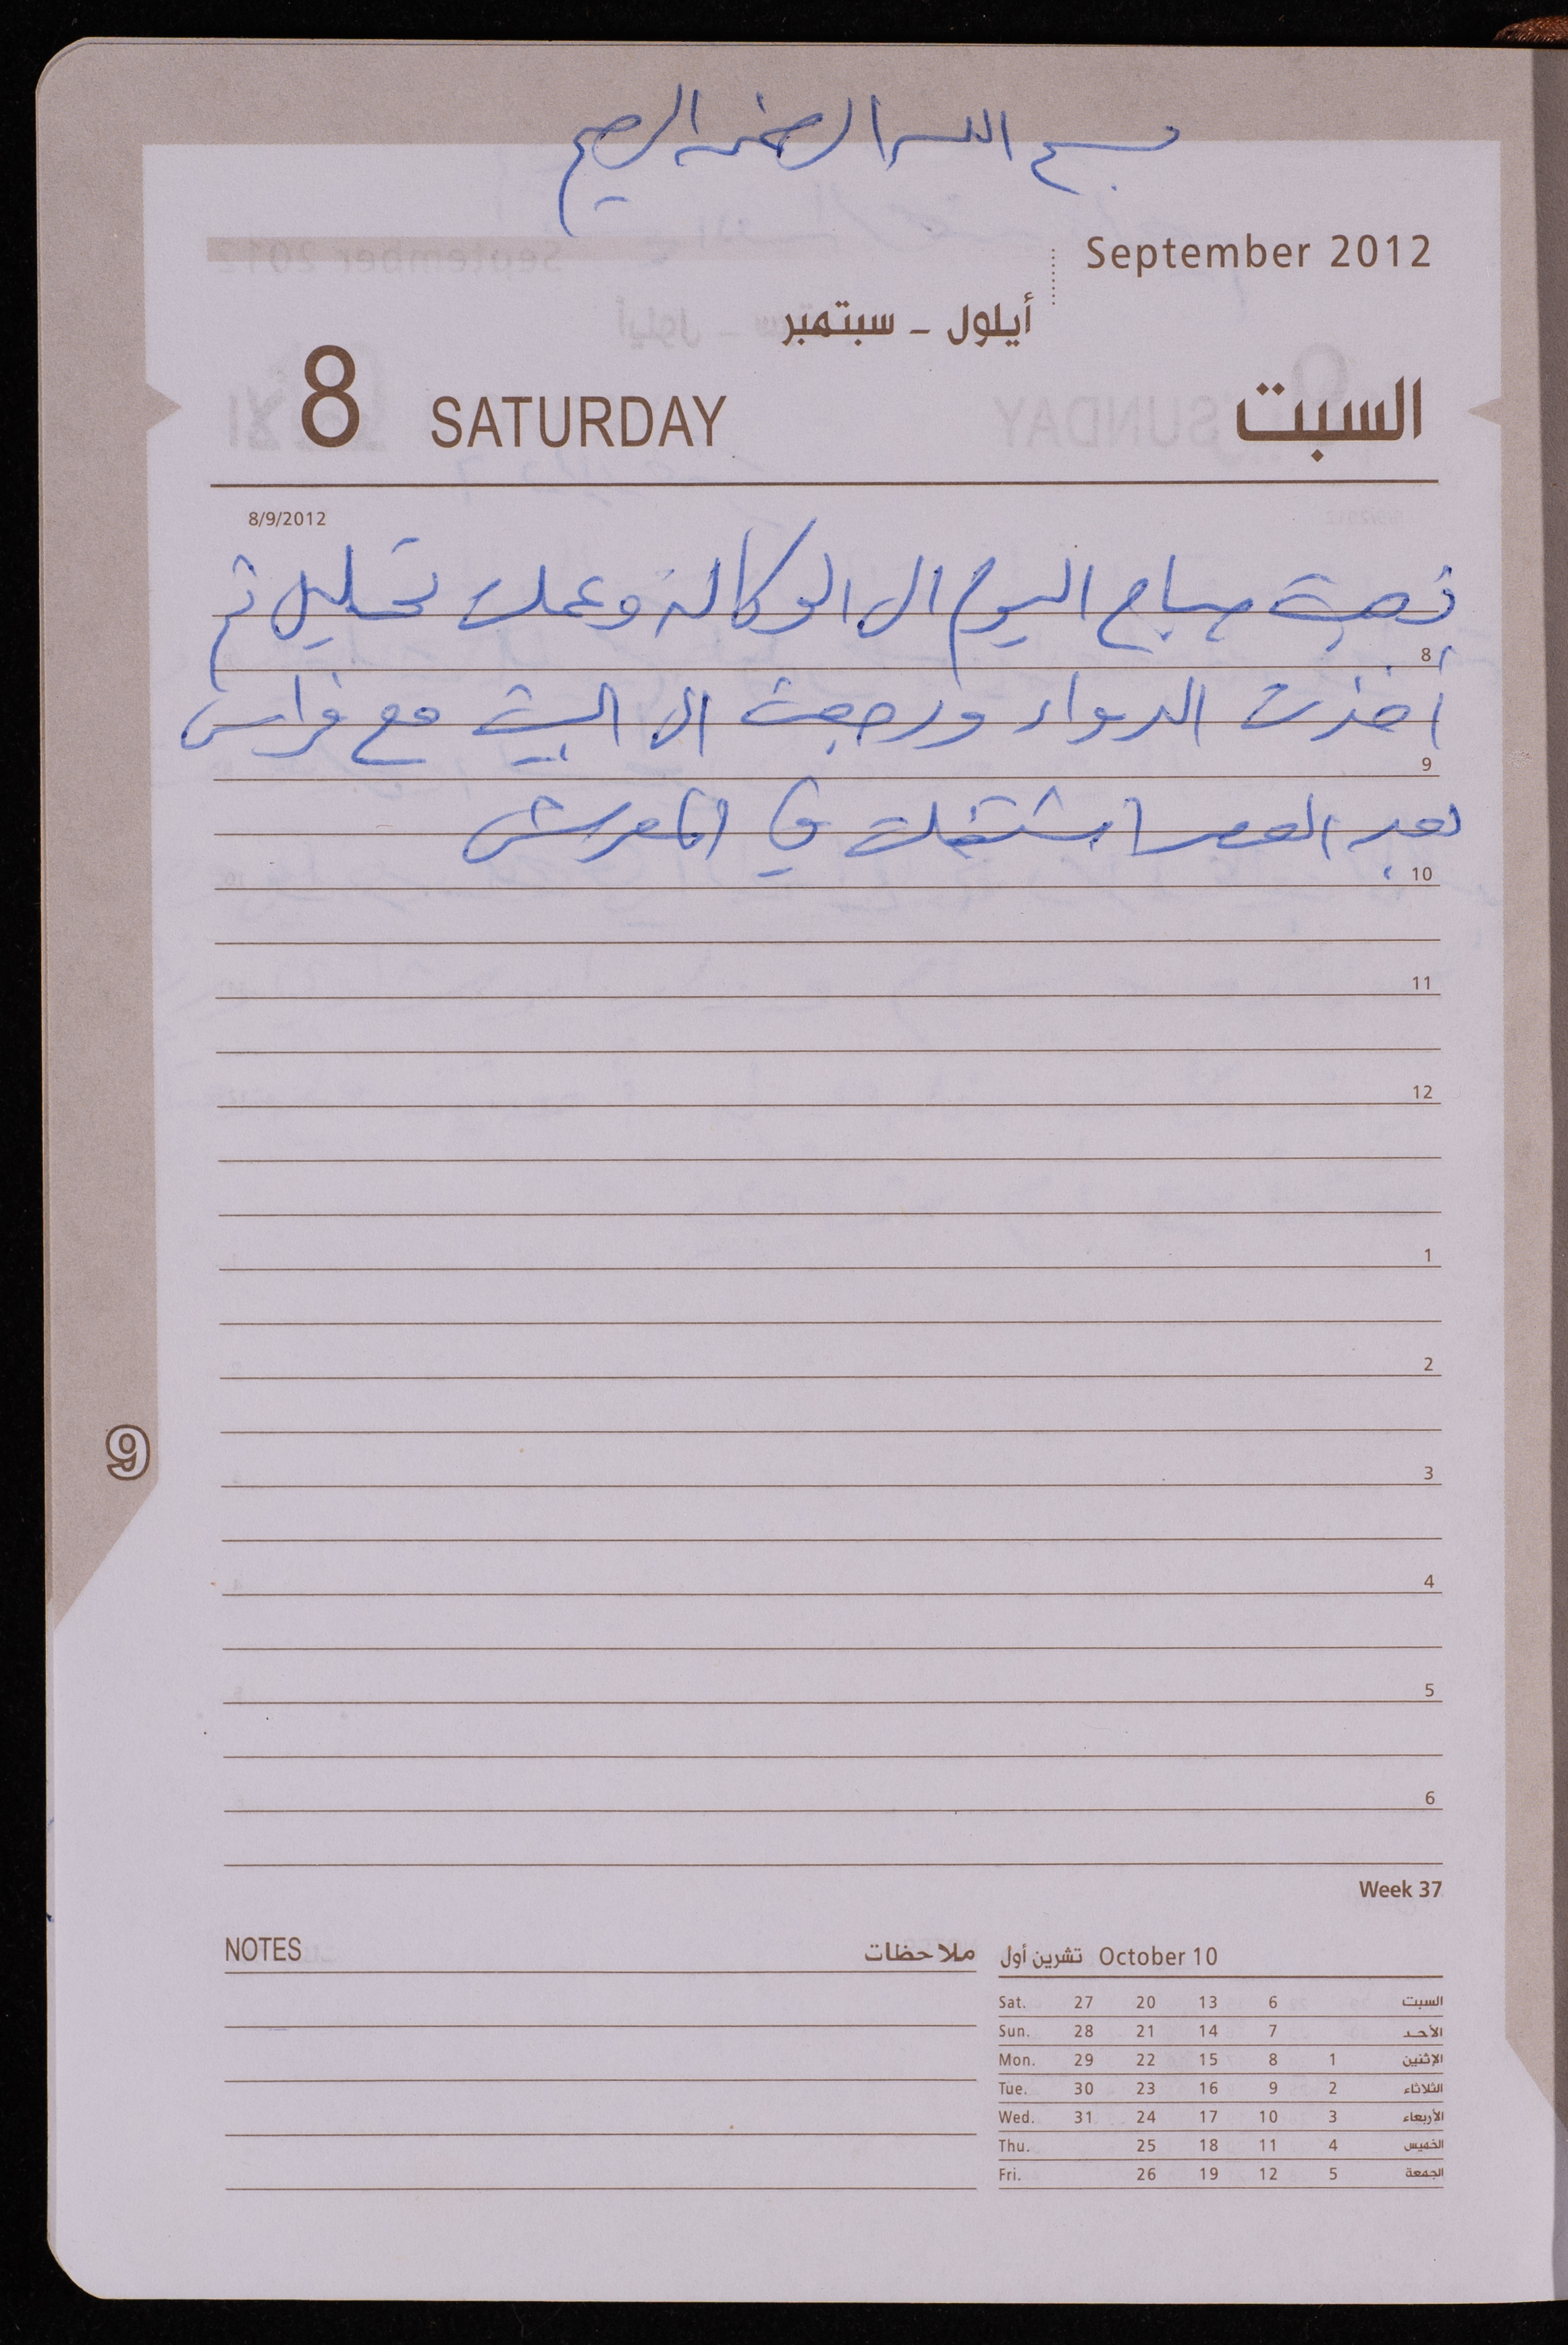 بسم الله الرحمن الرحيم
September 2012
أيلول - سبتمبر
8 SATURDAY السبت
8/9/2012
ذهبت صباح اليوم الى الوكالة وعملت تحليل ثم
8
أخذت الدواء ورجعت الى البيت مع فراس
9
بعد العصر اشتغلت في المعرش
10
11
12
1
2
3
9
4
5
6
Week 37
NOTES ملاحظات
تشرين أول October 10
Sat. 27 20 13 6 السبت
Sun. 28 21 14 7 الأحد
Mon. 29 22 15 8 1 الإثنين
Tue. 30 23 16 9 2 الثلاثاء
Wed. 31 24 17 10 3 الأربعاء
Thu. 25 18 11 4 الخميس
Fri. 26 19 12 5 الجمعة